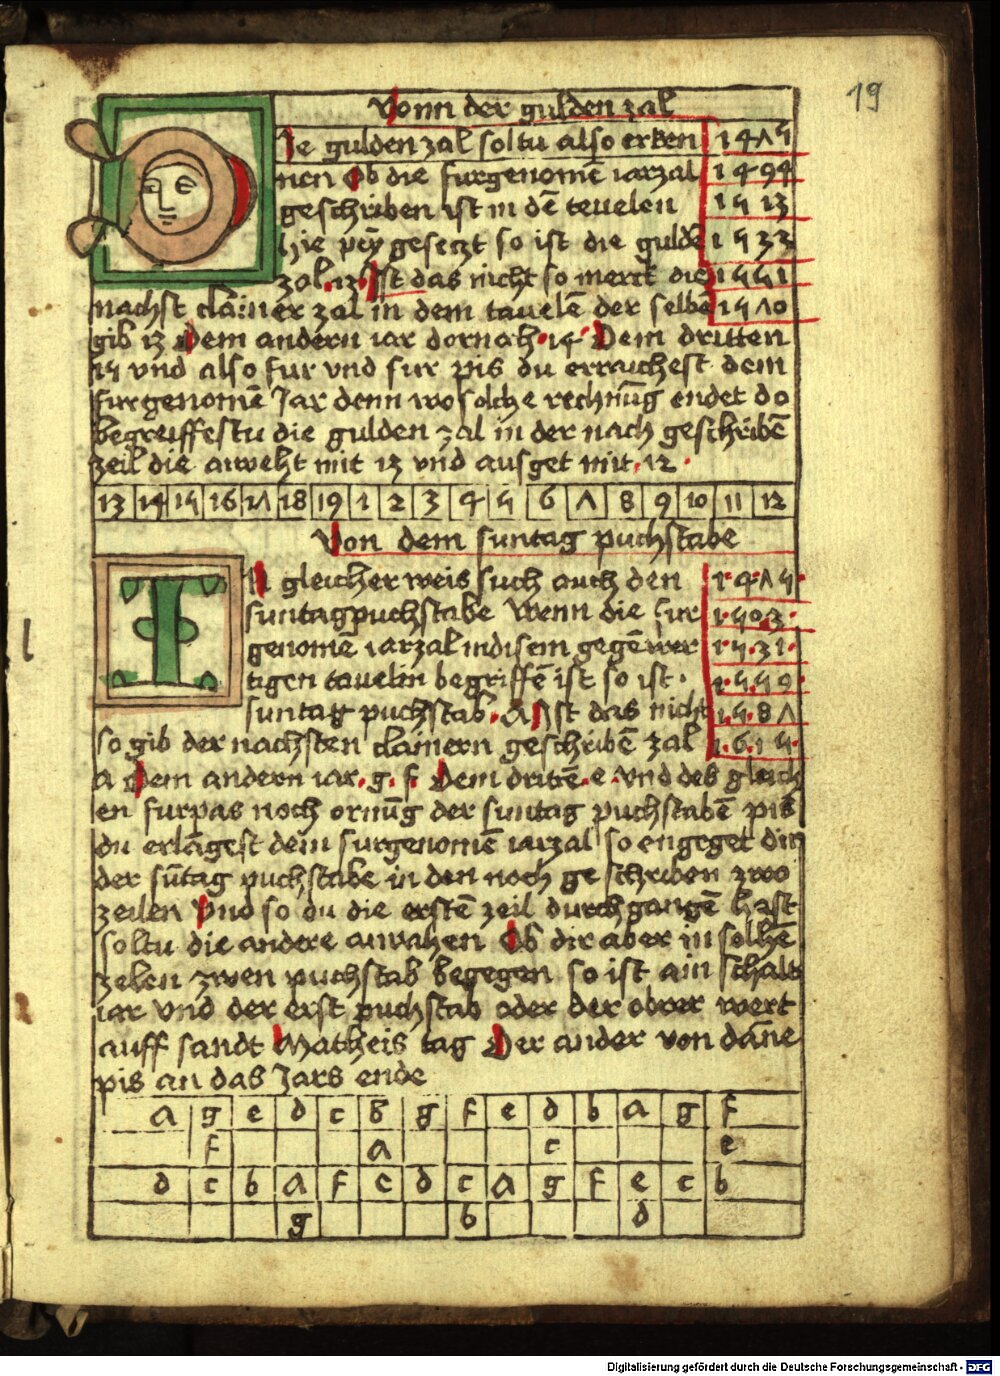 19
Vonn der gulden zal
DJe gulden zal soltu also erken
nen Ob die furgenomē iarzal
geschriben ist in dē teuelen
hie pey gesetzt so ist die guldē
zal .13. Jst das nicht so merck die
nachst clainer zal in dem tauelē der selbē
gib 13 Dem andern iar dornach .14. Dem dritten
15 vnd also fur vnd fur pis du erraichest dem
furgenomē Jar denn wo solche rechnūg endet do
begreiffestu die gulden zal in der nach geschribē
zeil die anheht mit 13 vnd ausget mit .12.
1475
1494
1513
1533
1551
1570
13 14 15 16 17 18 19 1 2 3 4 5 6 7 8 9 10 11 12
Von dem suntag puchstabe
IN gleicher weis such auch den
suntagpuchstabe Wenn die fur
genomē iarzal indisem gegēwer
tigen tauelin begriffē ist so ist .
suntag puchstab. A Jst das nicht
so gib der nachsten clainern geschribē zal
a Dem andern iar .g. f. Dem dritē .e. vnd des gleich
en furpas noch ornūg der suntag puchstabē pis
du erlāgest dem furgenomē iarzal so engeget dir
der sūtag puchstabe in den noch geschriben zwo
zeilen Vnd so du die erstē zeil durchgangē hast
soltu die andere anvahen Ob dir aber in solhē
zelen zwen puchstab begegen so ist ain schalt
iar vnd der erst puchstab oder der ober wert
auff sandt Matheis tag Der ander von dāne
pis an das Jars ende
1.4.7.5.
1.5.0.3.
1.5.31.
1.5.5.9.
1.5.8.7
1.6.1.5.
a g e d c b g f e d b a g f
f a c e
d c b a f e d c a g f e c b
g b d
Digitalisierung gefördert durch die Deutsche Forschungsgemeinschaft - DFG